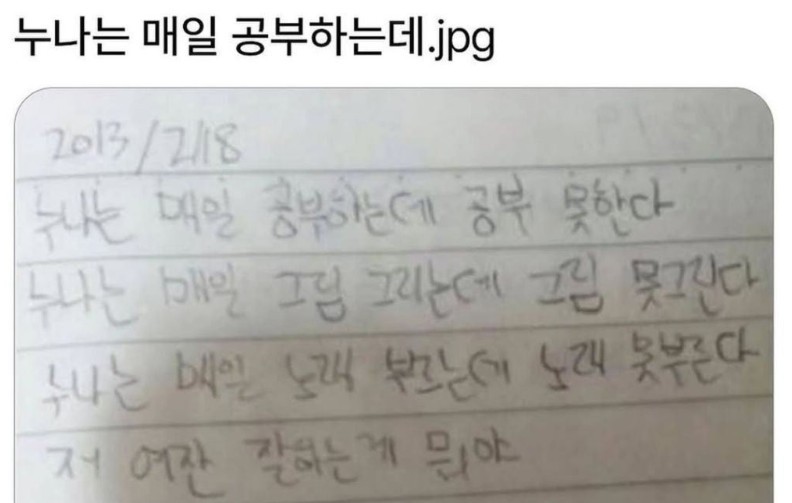 누나는 매일 공부하는데.jpg
2013/2/18
누나는 매일 공부하는데 공부 못한다
누나는 매일 그림 그리는데 그림 못그린다
누나는 매일 노래 부르는데 노래 못부른다
저 여잔 잘하는게 뭐야